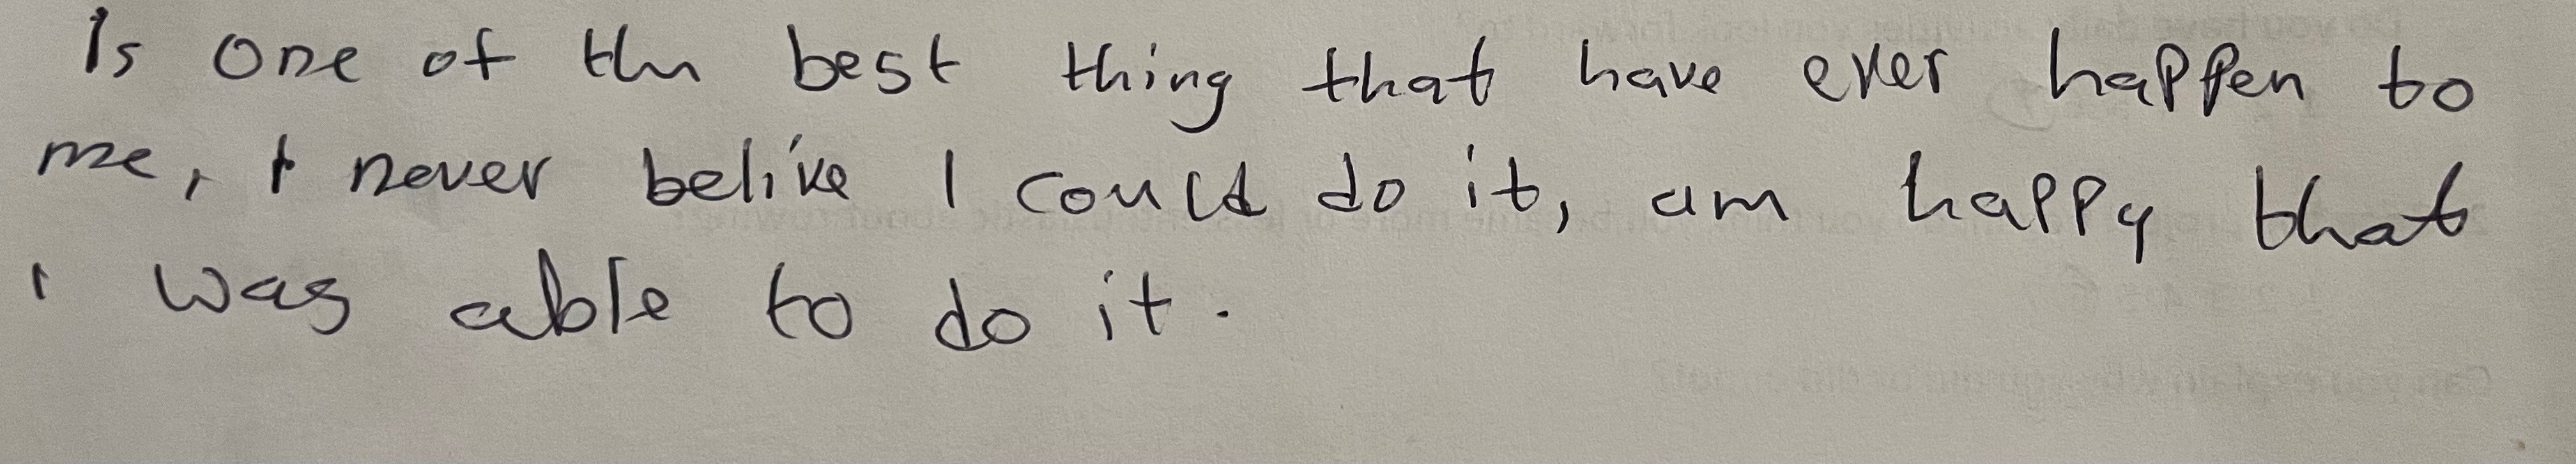 Is one of the best thing that have ever happen to
me, I never belive I could do it, am happy that
i was able to do it.